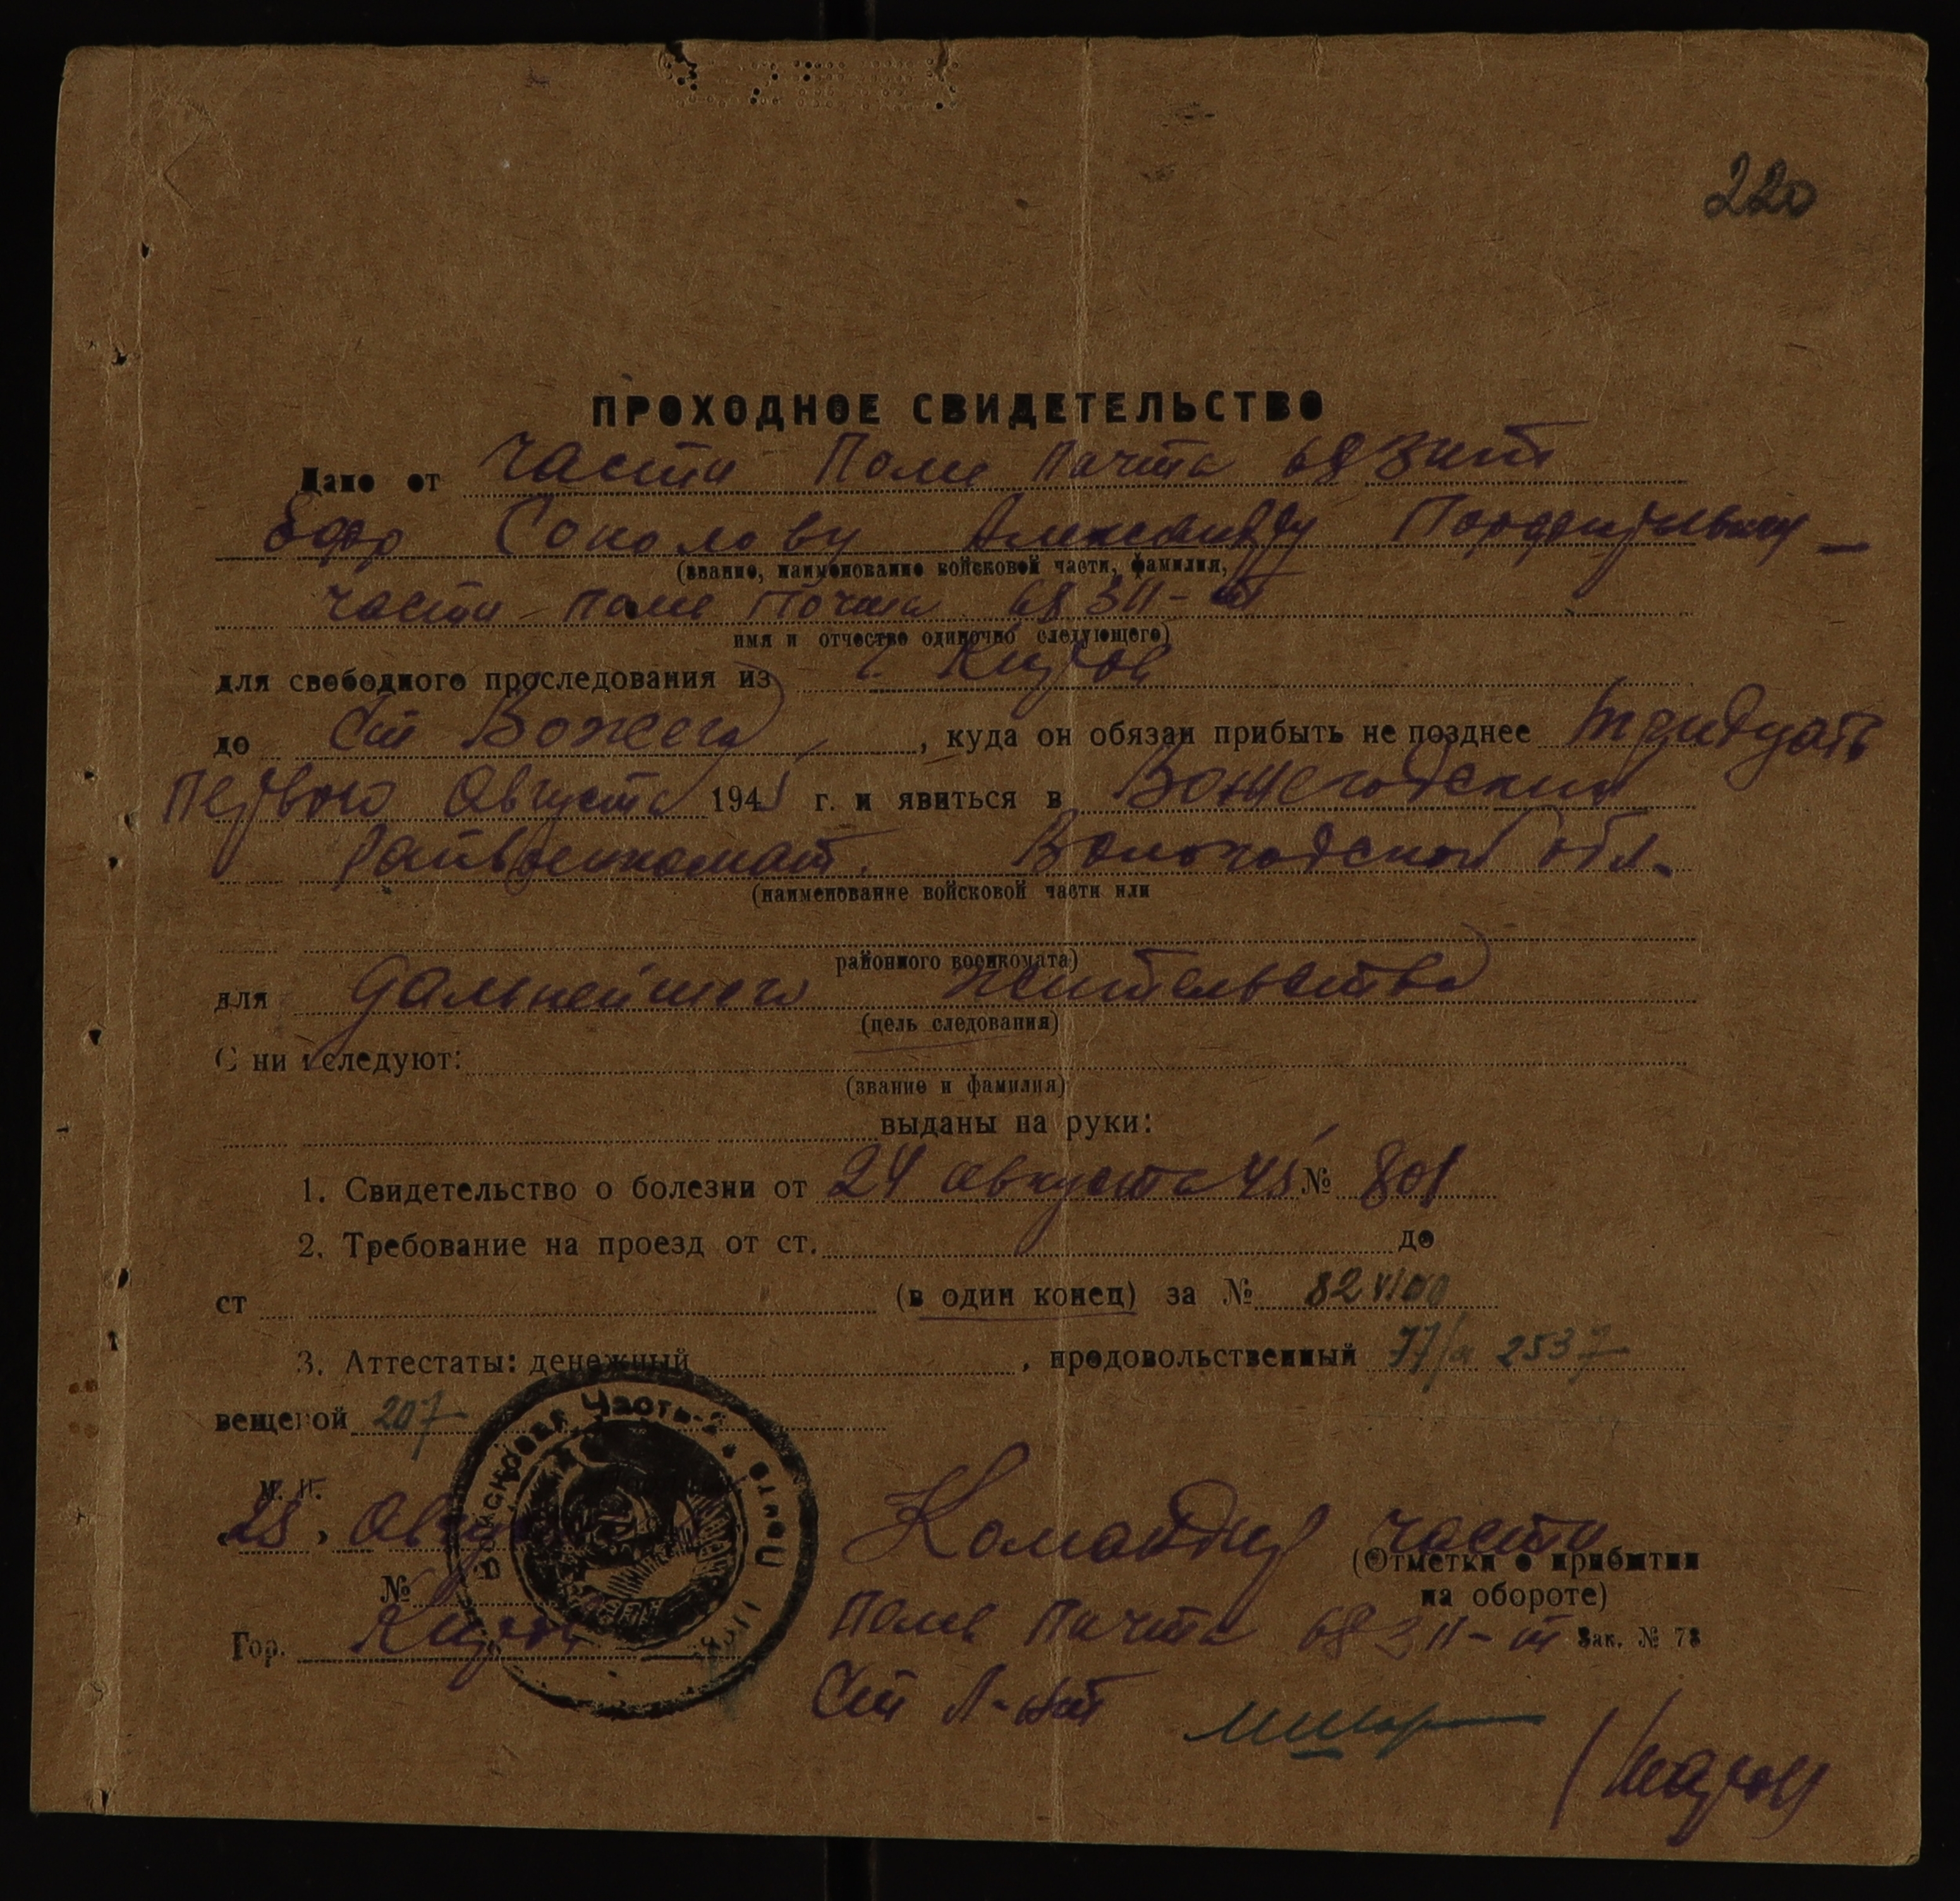 220
ПРОХОДНОЕ СВИДЕТЕЛЬСТВО
Дано от части Поле Почта 68311т
Соколову Александру Порфирьевичу –
(звание, наименование войсковой части, фамилия,
части поле Почта 68311-т
имя и отчество одиночно следующего)
для свободного проследования из г. Киров
до Ст Вожега, куда он обязан прибыть не позднее тридцать
первого Августа 1945 г. и явиться в Вожегодский
Райвоенкомат. Вологодской обл.
(наименование войсковой части или
районного военкомата)
для дальнейшего жительства
(цель следования)
С ни следуют:
(звание и фамилия)
выданы на руки:
1. Свидетельство о болезни от 24 августа 45 № 801
2. Требование на проезд от ст. до
ст (в один конец) за №
3. Аттестаты: денежный , продовольственный 77/а 2537
вещевой 207
М. П.
Войсковая Часть Полев. Почта
„28" Август
№
Гор. Киров
Командир части
(Отметки о прибытии
на обороте)
Поле Почта 68311-т
Зак. № 78
Ст Л-нт